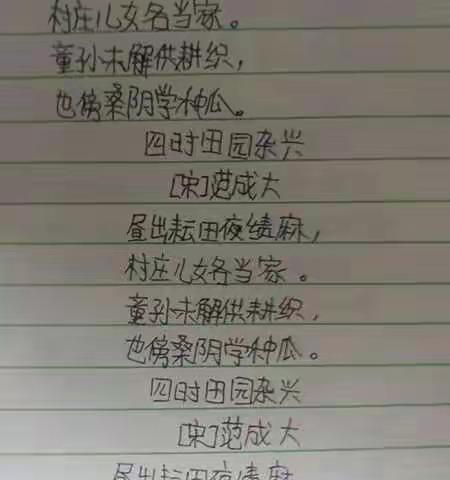 村庄儿女各当家。
童孙未解供耕织,
也傍桑阴学种瓜。
四时田园杂兴
[宋]范成大
昼出耘田夜绩麻,
村庄儿女各当家。
童孙未解供耕织,
也傍桑阴学种瓜。
四时田园杂兴
[宋]范成大
昼出耘田夜绩麻